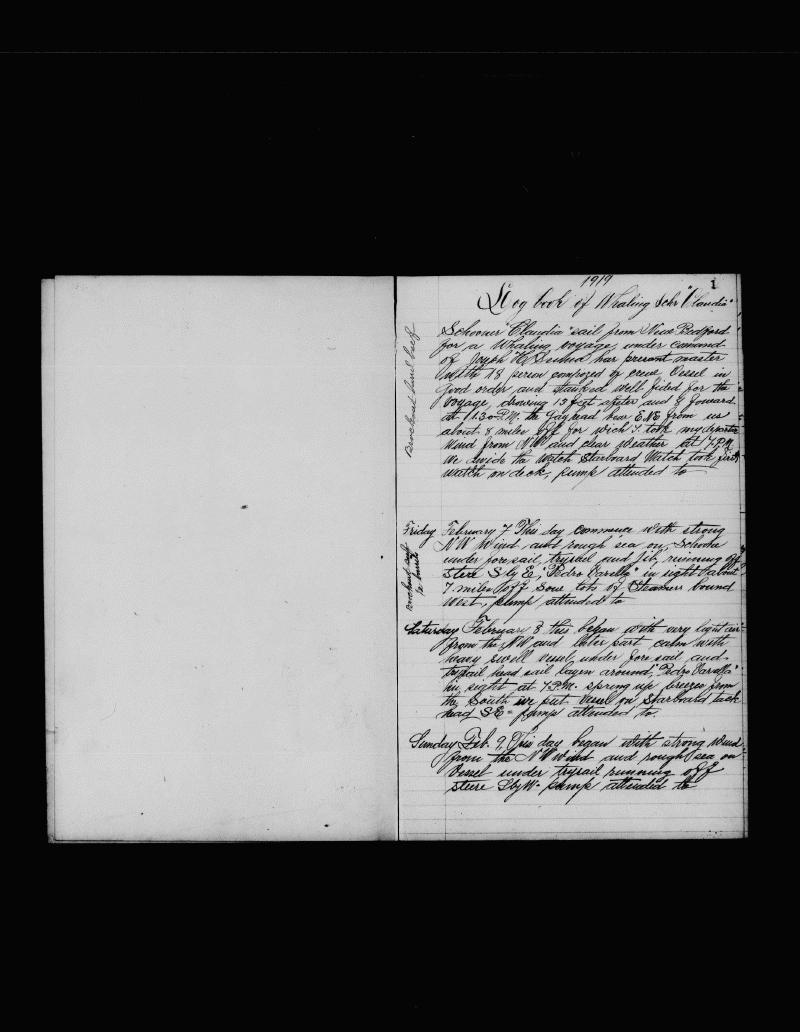 1919
1
Log book of Whaling Schr "Claudia"
Schooner "Claudia" sail from New Bedford
for a Whaling voyage, under comand
of Joseph har present master
with 28 person composed of crew. Vessel in
good order and well fited for the
voyage, drowing 13 feet after and 9 foward
at 1.30 P.M. the Gayhead bear E.N.E. from us
about 8 miles off for wich I took my departur
Wind from N.W. and clear weather at 7 P.M.
We divide the Watch Starboard Watch took first
watch on deck, pump attended to
brockout beef
Friday February 7 This day commence with strong
N.W. Wind and rough sea on, Schooner
under foresail, trysail and jib, running off
stere S by E, "Pedro Varella" in sight about
7 miles off Saw lots of Steamers bound
West, pump attended to
brockout
Saturday Februari 8 this began with very light air
from the N.W and later part calm with
heavy swell Vessel under fore sail and
trysail head sail layen around, "Pedro Varella"
in sight at 7 P.M. spring up breeze from
the South we put Vessel on Starboard tack
head S.E. pump attended to.
Sunday Feb. 9. This day began with strong Wind
from the N.W wind and rough sea on
Vessel under trysail running off
stere S by W. pump attended to